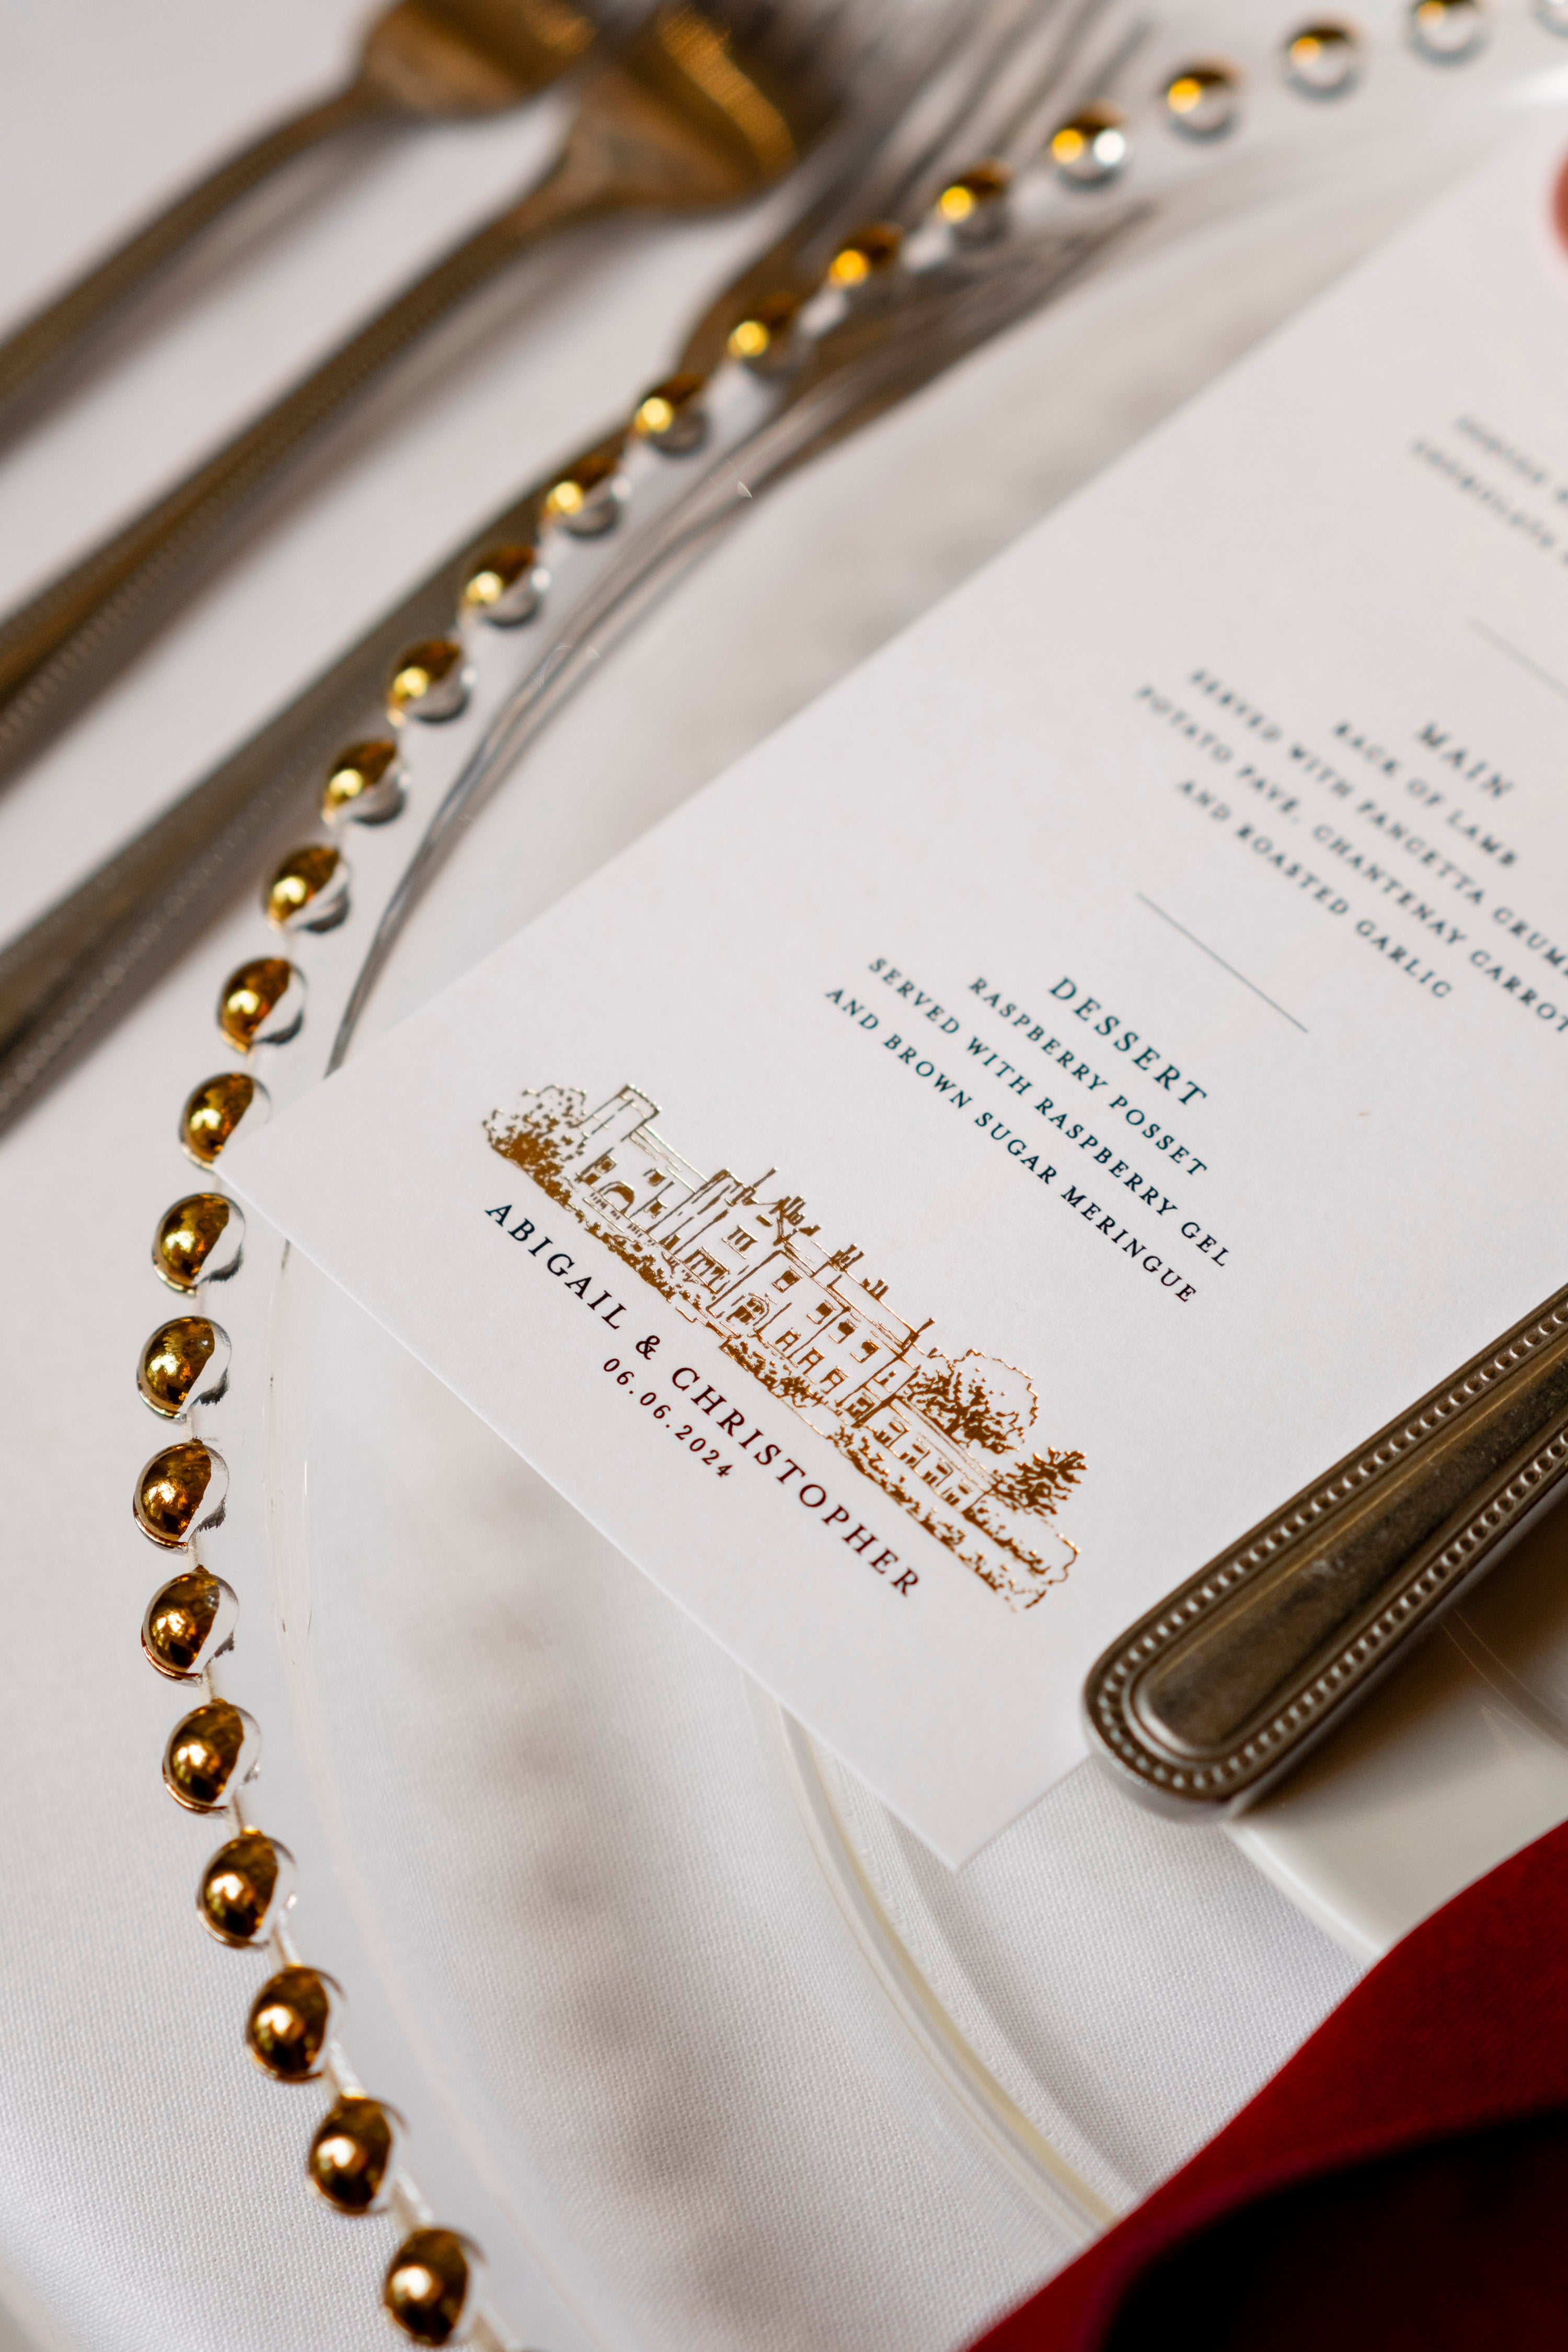 MAIN
RACK OF LAMB
SERVED WITH PANCETTA
POTATO PAVÉ, CHANTENAY
AND ROASTED GARLIC
DESSERT
RASPBERRY POSSET
SERVED WITH RASPBERRY GEL
AND BROWN SUGAR MERINGUE
ABIGAIL & CHRISTOPHER
06.06.2024